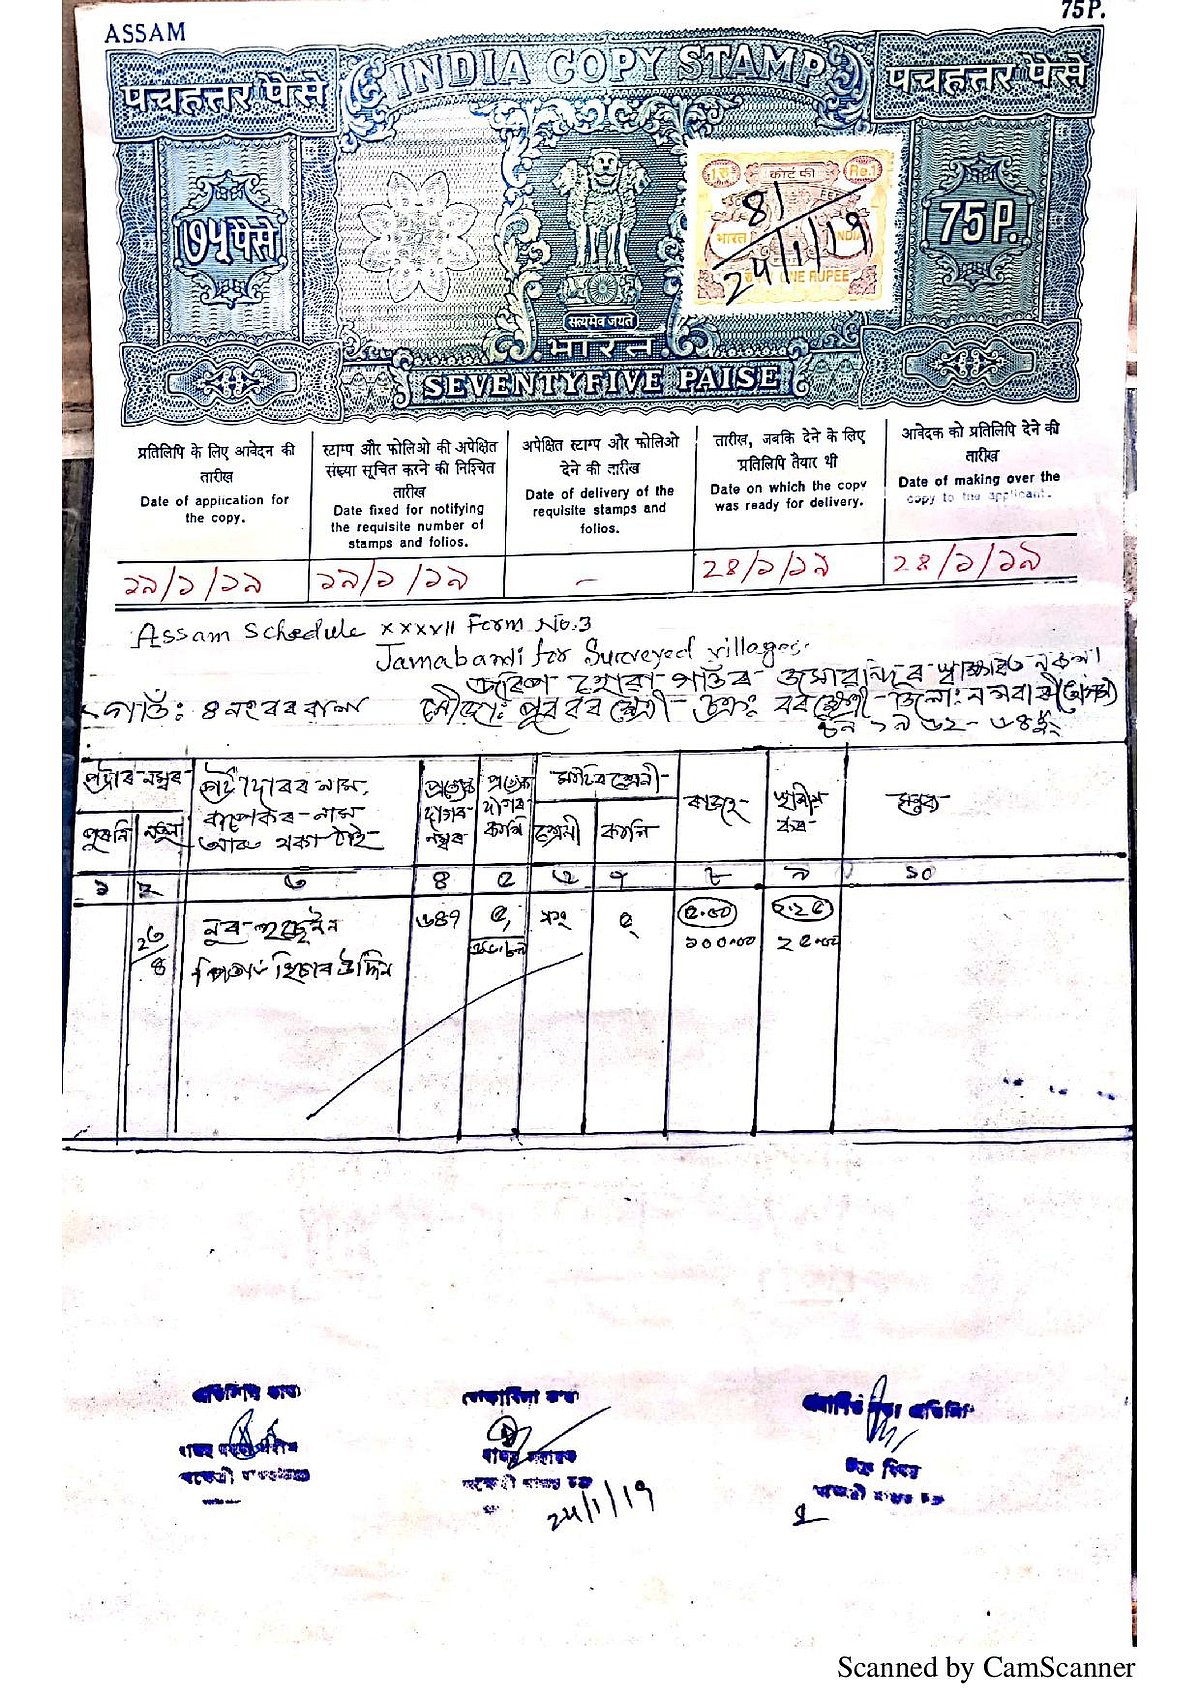 ASSAM
75P.
INDIA COPY STAMP
पचहत्तर पैसे
पचहत्तर पैसे
७५ पैसे
75P.
1 रु
कोर्ट फी
Re.1
भारत
INDIA
ONE RUPEE
8/
24/1/19
सत्यमेव जयते
भारत
SEVENTYFIVE PAISE
प्रतिलिपि के लिए आवेदन की तारीख
Date of application for the copy.
स्टाम्प और फोलिओ की अपेक्षित संख्या सूचित करने की निश्चित तारीख
Date fixed for notifying the requisite number of stamps and folios.
अपेक्षित स्टाम्प और फोलिओ देने की तारीख
Date of delivery of the requisite stamps and folios.
तारीख, जबकि देने के लिए प्रतिलिपि तैयार थी
Date on which the copy was ready for delivery.
आवेदक को प्रतिलिपि देने की तारीख
Date of making over the copy to the applicant.
২৯/১/১৯ ১৯/১/১৯ — ২৪/১/১৯ ২৪/১/১৯
Assam Schedule xxxvii Form No.3
Jamabandi for Surveyed villages.
জৰিপ হোৱা গাওঁৰ জমাবন্দিৰ
গাওঁ: ৪ নং বৰবালা মৌজা: পূব বৰক্ষেত্ৰী চক্ৰ: বৰক্ষেত্ৰী জিলা: নলবাৰী (অসম)
চন ১৯৬২-৬৪ইং
পট্টাৰ নম্বৰ
পুৰণি
নতুন
পট্টাদাৰৰ নাম, বাপেকৰ নাম আৰু থকা ঠাই
প্ৰত্যেক দাগৰ নম্বৰ
প্ৰত্যেক দাগৰ কালি
মাটিৰ শ্ৰেণী
শ্ৰেণী
কালি
ৰাজহ
স্থানীয় কৰ
মন্তব্য
১ ২ ৩ ৪ ৫ ৬ ৭ ৮ ৯ ১০
২৩/৪
নুৰ হুছেইন
পিতাঃ হিচাব উদ্দিন
৬৪৭
১০০.০০
২৫.০০
24/1/19
Scanned by CamScanner